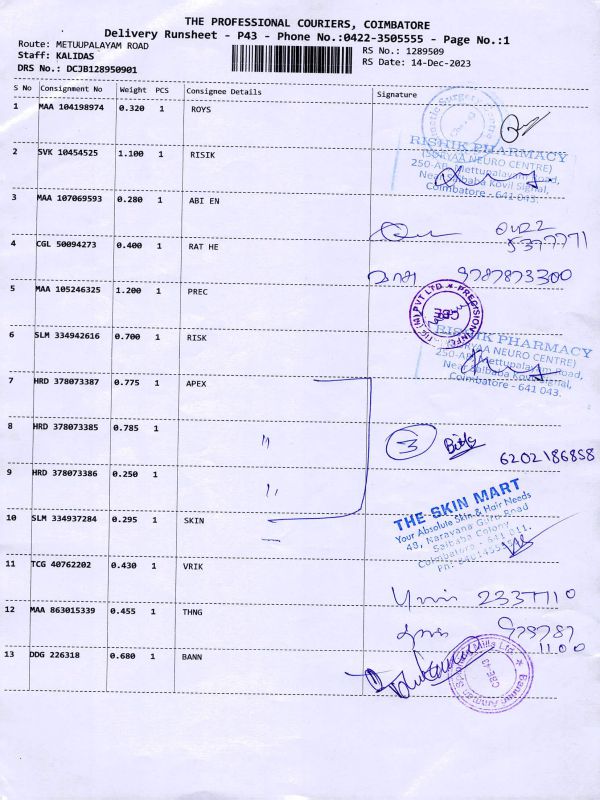 THE PROFESSIONAL COURIERS, COIMBATORE
Delivery Runsheet - P43 - Phone No.:0422-3505555 - Page No.:1
Route: METUUPALAYAM ROAD
RS No.: 1289509
Staff: KALIDAS
RS Date: 14-Dec-2023
DRS No.: DCJB128950901
S No Consignment No Weight PCS Consignee Details Signature
1 MAA 104198974 0.320 1 ROYS
RISHIK PHARMACY
(SURYAA NEURO CENTRE)
250-AB, Mettupalayam Road,
Near Saibaba Kovil Signal,
Coimbatore - 641 043.
2 SVK 10454525 1.100 1 RISIK
3 MAA 107069593 0.280 1 ABI EN
4 CGL 50094273 0.400 1 RAT HE
9787873300
5 MAA 105246325 1.200 1 PREC
6 SLM 334942616 0.700 1 RISK
RISHIK PHARMACY
(SURYAA NEURO CENTRE)
250-AB, Mettupalayam Road,
Near Saibaba Kovil Signal,
Coimbatore - 641 043.
7 HRD 378073387 0.775 1 APEX
8 HRD 378073385 0.785 1 "
3
6202186858
9 HRD 378073386 0.250 1 "
10 SLM 334937284 0.295 1 SKIN
THE SKIN MART
Your Absolute Skin & Hair Needs
Saibaba Colony
11 TCG 40762202 0.430 1 VRIK
2337710
12 MAA 863015339 0.455 1 THNG
979787
1100
13 DDG 226318 0.680 1 BANN
CBE-43